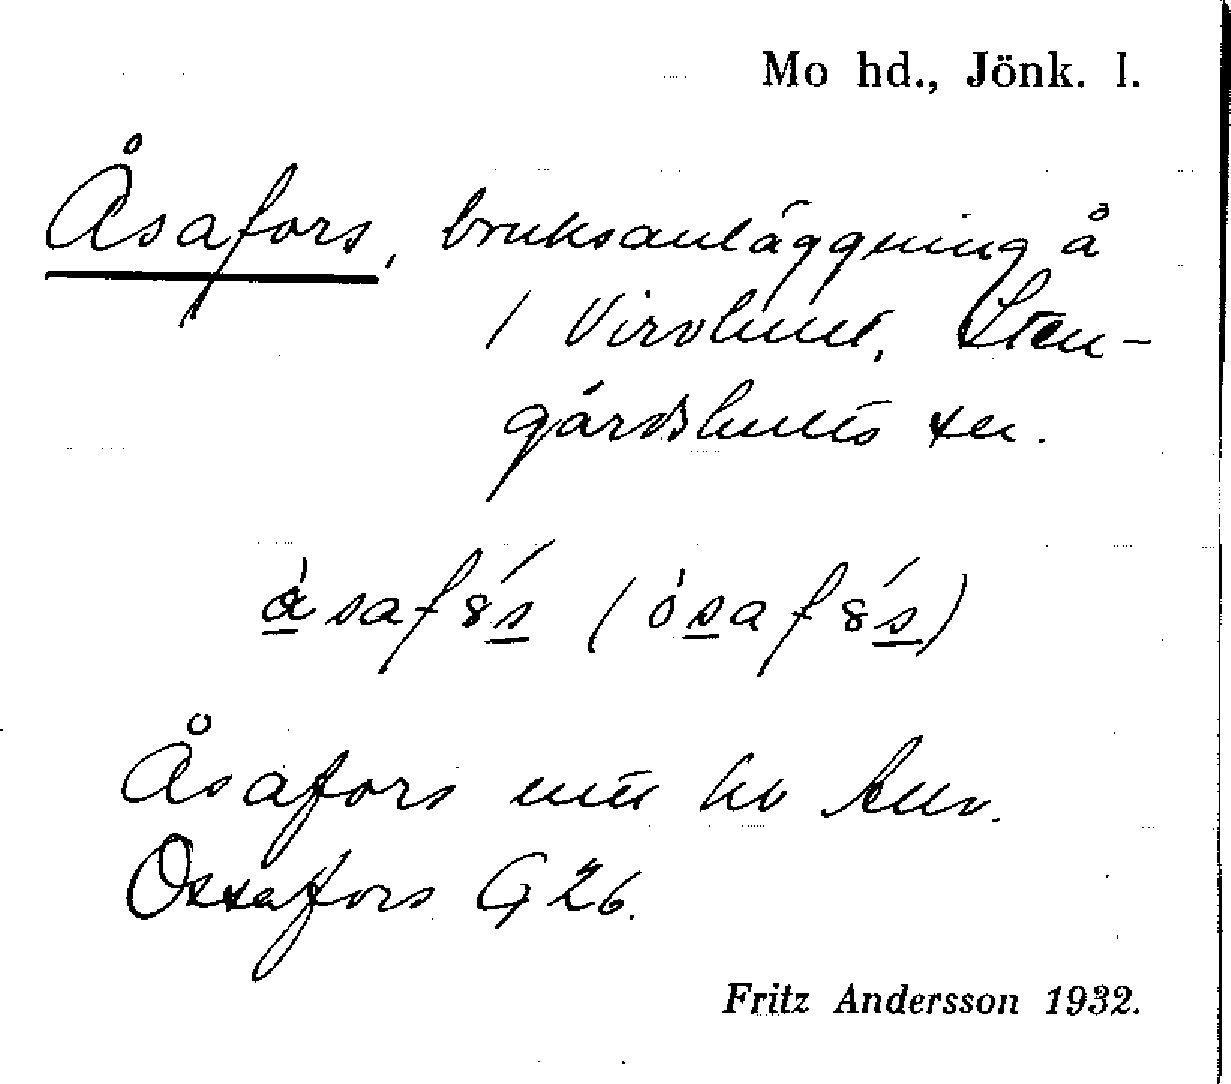 Mo hd., Jönk. l.
Åsafors, bruksanläggning å
1 Virvhult, Sten-
gårdshults sn.
åsafȣs (ósafȣs)
Åsafors
Ossafors G 26.
Fritz Andersson 1932.